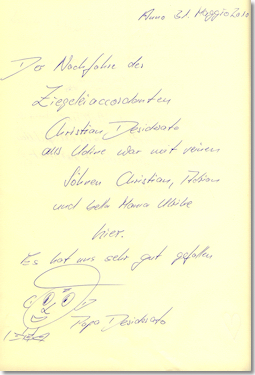 Anno 21. Maggio 2010
Der Nachfahre des
Ziegeleiaccordanten
Christian Desiderato
aus Udine war mit seinen
Söhnen Christian, Adrian
und Maria Ulrike
hier.
Es hat uns sehr gut gefallen
Papa Desiderato